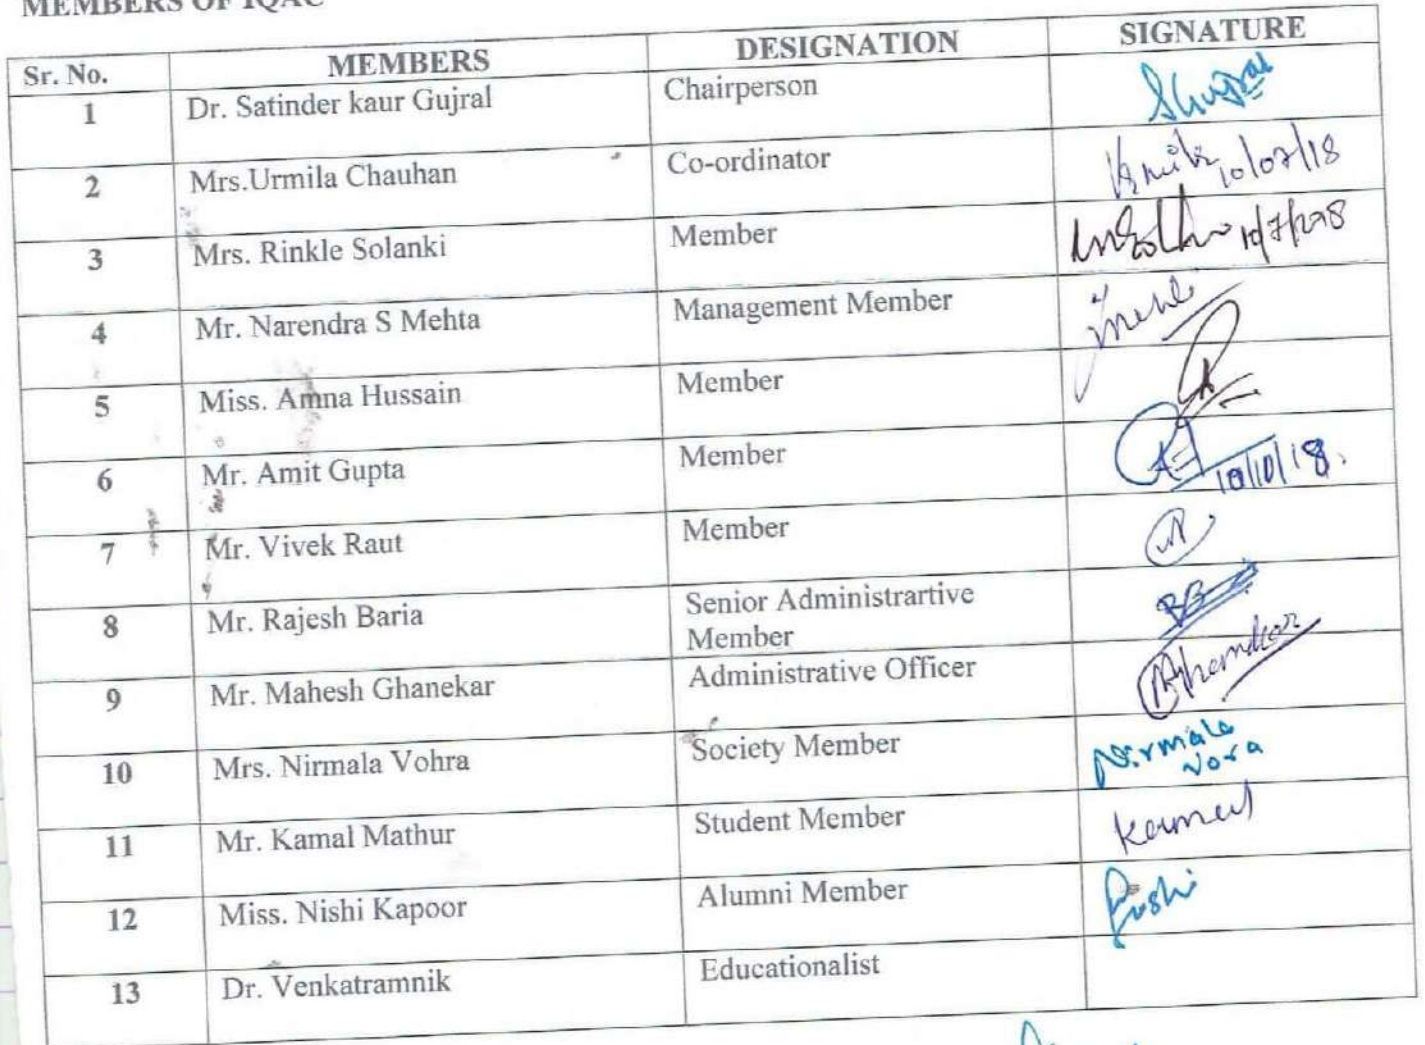 MEMBERS OF IQAC
Sr. No. MEMBERS DESIGNATION SIGNATURE
1 Dr. Satinder kaur Gujral Chairperson
2 Mrs.Urmila Chauhan Co-ordinator 10/07/18
3 Mrs. Rinkle Solanki Member 10/7/2018
4 Mr. Narendra S Mehta Management Member
5 Miss. Amna Hussain Member
6 Mr. Amit Gupta Member 10/10/18.
7 Mr. Vivek Raut Member
8 Mr. Rajesh Baria Senior Administrartive
Member
9 Mr. Mahesh Ghanekar Administrative Officer
10 Mrs. Nirmala Vohra Society Member Nirmala
Vora
11 Mr. Kamal Mathur Student Member Kamal
12 Miss. Nishi Kapoor Alumni Member
13 Dr. Venkatramnik Educationalist